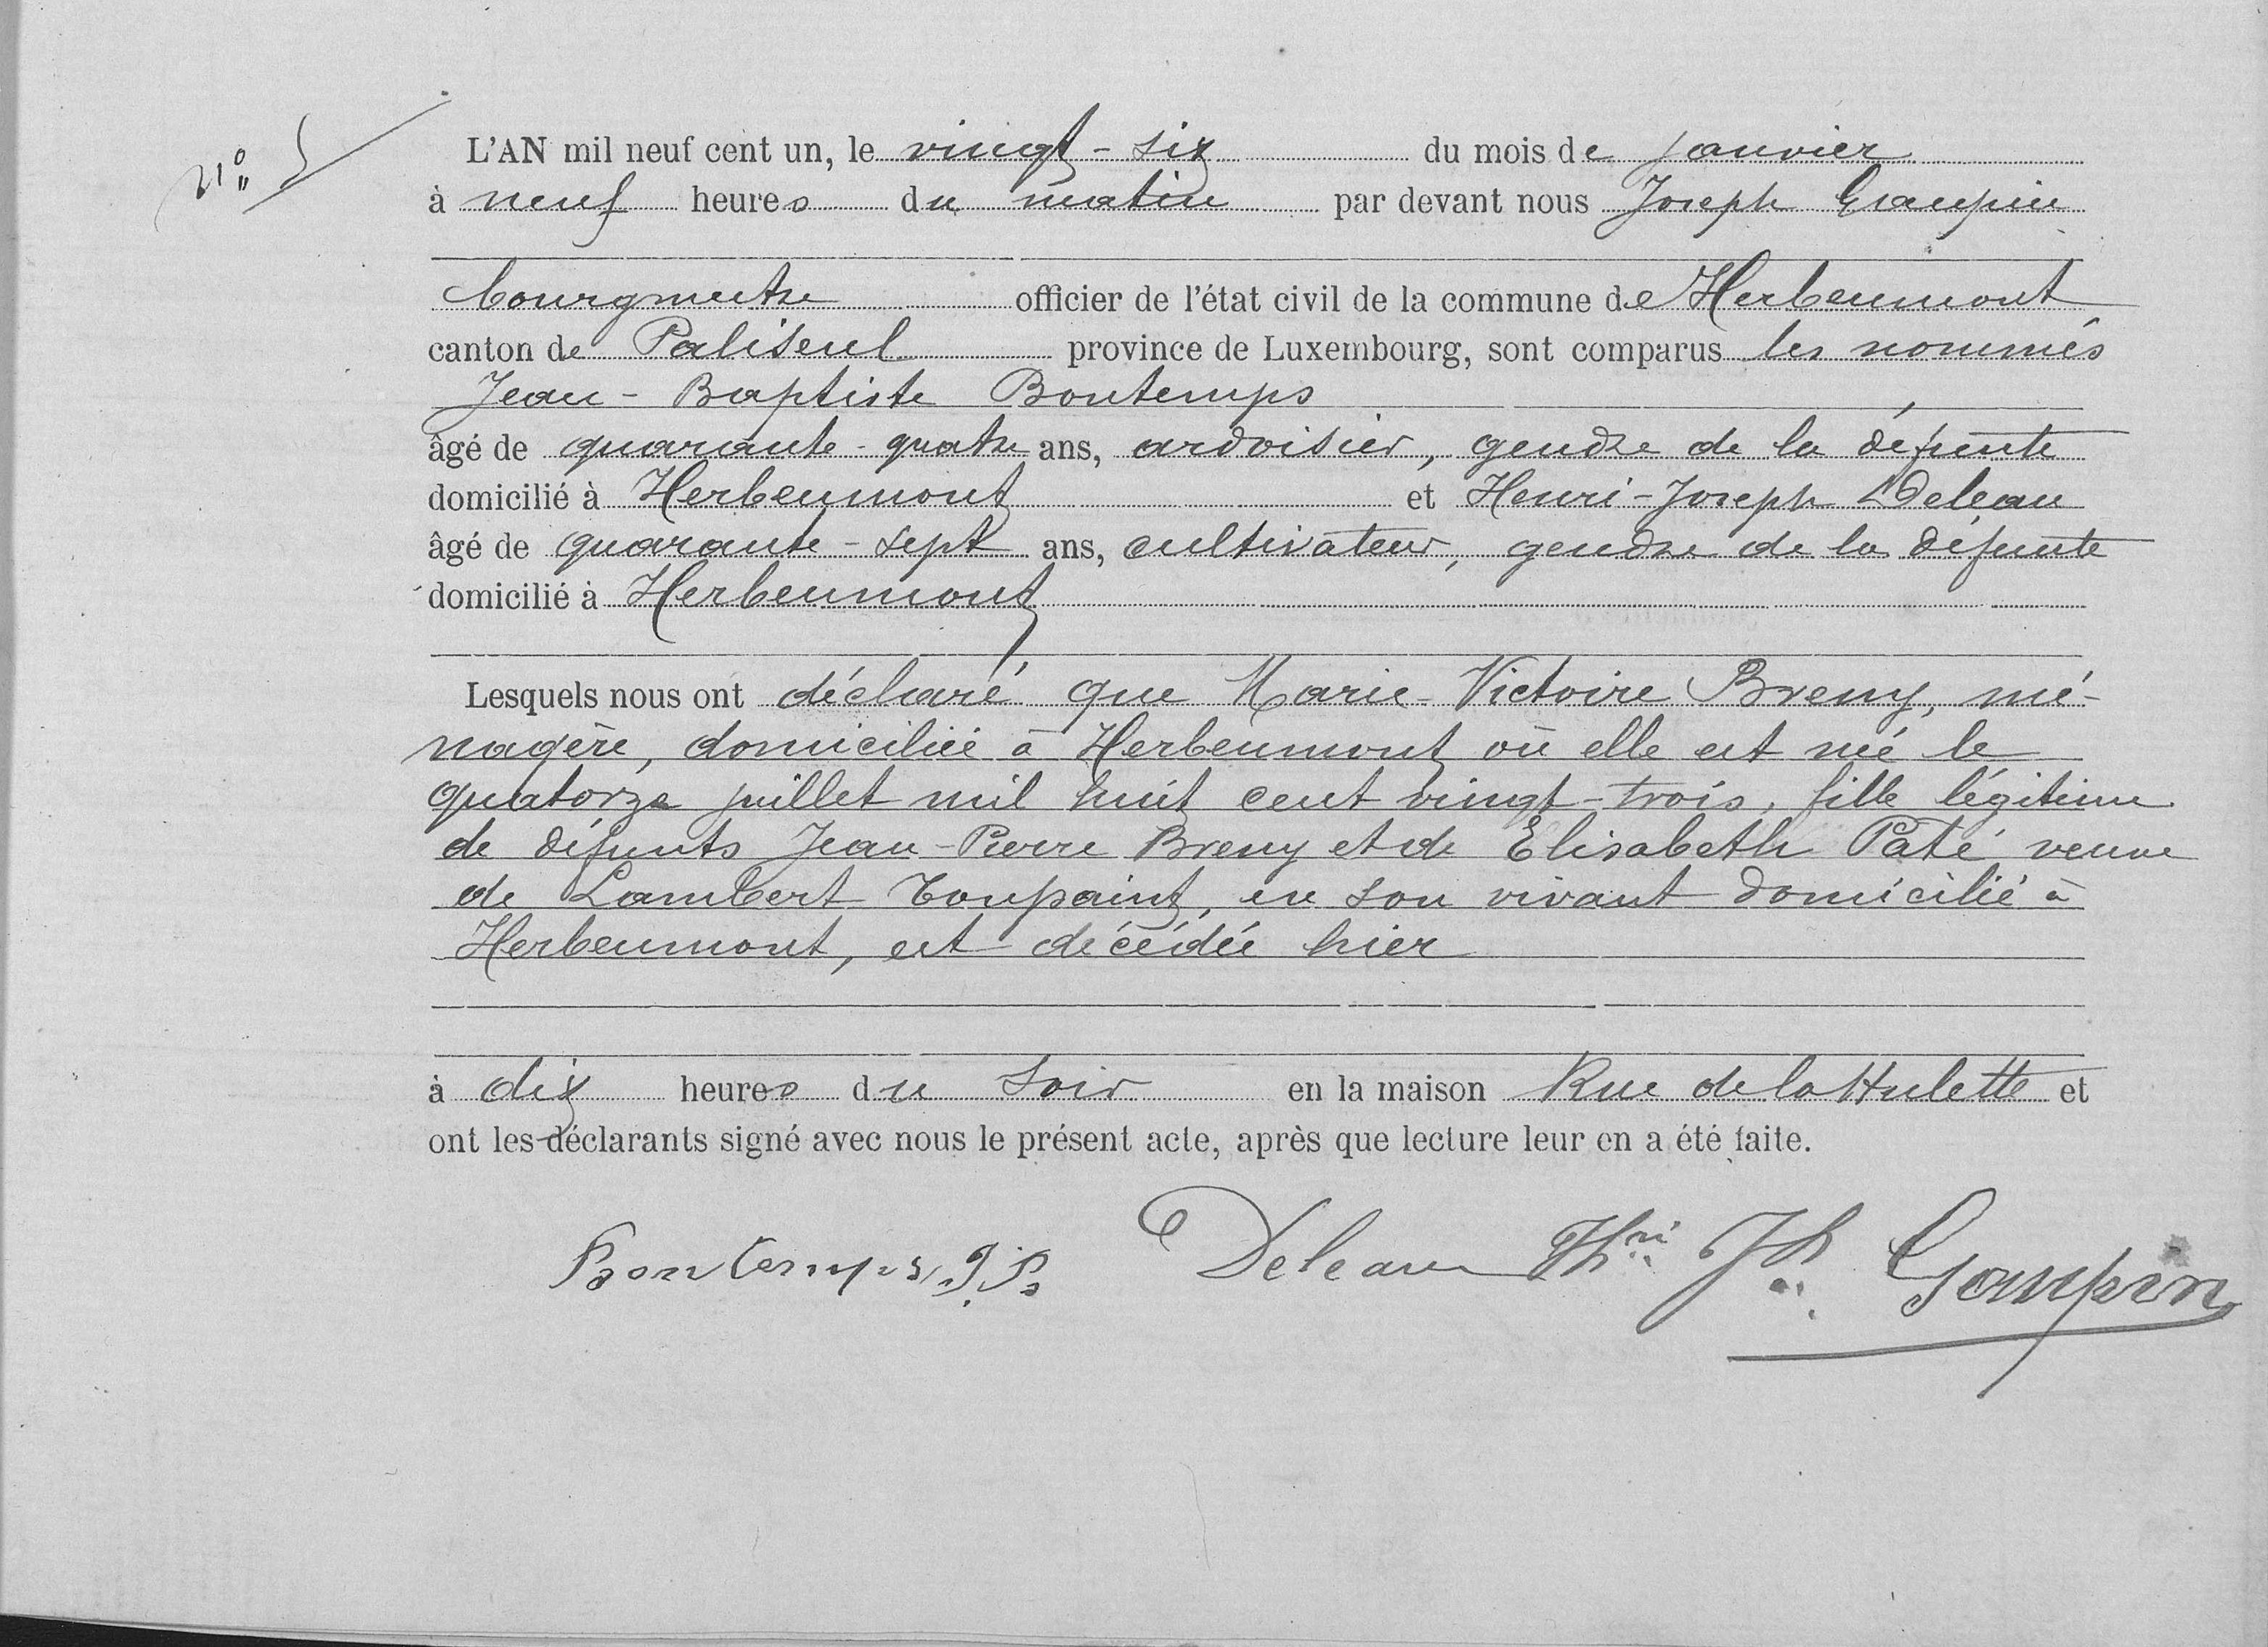 N° 5
L'AN mil neuf cent un, le vingt-six du mois de janvier
à neuf heures du matin par devant nous Joseph Graupin
bourgmestre officier de l'état civil de la commune de Herbeumont
canton de Paliseul province de Luxembourg, sont comparus les nommés
Jean-Baptiste Bontemps
âgé de quarante-quatre ans, ardoisier, gendre de la défunte
domicilié à Herbeumont et Henri-Joseph Deleau
âgé de quarante-sept ans, cultivateur, gendre de la défunte
domicilié à Herbeumont
Lesquels nous ont déclaré que Marie-Victoire Breny, mé-
nagère, domiciliée à Herbeumont où elle est née le
quatorze juillet mil huit cent vingt-trois, fille légitime
de défunts Jean-Pierre Breny et de Elisabeth Paté veuve
de Lambert Toupaint, en son vivant domicilié à
Herbeumont, est décédée hier
à dix heures du soir en la maison Rue de la Hulette et
ont les déclarants signé avec nous le présent acte, après que lecture leur en a été faite.
Bontemps J.B. Deleau Hri Jh Graupin